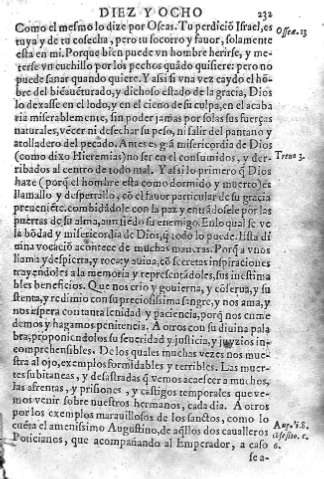 DIEZ Y OCHO
232
Como el mesmo lo dize por Oseas. Tu perdiciõ Israel, es
Oseæ. 13
tuya y de tu cosecha, pero tu socorro y fauor, solamente
esta en mi. Porque bien puede vn hombre herirse, y me-
terse vn cuchillo por los pechos quãdo quisiere: pero no
puede sanar quando quiere. Y assi si vna vez caydo el hõ-
bre del biẽauẽturado, y dichoso estado de la gracia, Dios
lo dexasse en el lodo, y en el cieno de su culpa, en el acaba
ria miserablemente, sin poder jamas por solas sus fuerças
naturales, vẽcer ni desechar su peso, ni salir del pantano y
atolladero del pecado. Antes es grã misericordia de Dios
(como dixo Hieremias) no ser en el consumidos, y der-
Treno 3.
ribados al centro de todo mal. Y assi lo primero q̃ Dios
haze (porq̃ el hombre esta como dormido y muerto) es
llamallo y despertallo, cõ el fauor particular de su gracia
preueniẽte, combidãdole con la paz y entrãdosele por las
puertas de su alma, aun siẽdo su enemigo. En lo qual se ve
la bõdad y misericordia de Dios, q̃ todo lo puede. Esta di
uina vocaciõ acontece de muchas maneras. Porq̃ a vnos
llama y despierta, y toca y auiua, cõ secretas inspiraciones
trayendoles a la memoria y representãdoles, sus inestima
bles beneficios. Que nos crio y gouierna, y cõserua, y su
stenta, y redimio con su preciosissima sangre, y nos ama, y
nos espera con tanta lenidad y paciencia, porq̃ nos enme
demos y hagamos penitencia. A otros con su diuina pala
bra, proponiendolos su seueridad y justicia, y juyzios in-
comprehensibles. De los quales muchas vezes nos mue-
stra al ojo, exemplos formidables y terribles. Las muer-
tes subitaneas, y desastradas q̃ vemos acaescer a muchos,
las afrentas, y prisiones, y castigos temporales que ve-
mos venir sobre nuestros hermanos, cada dia. A otros
por los exemplos marauillosos de los sanctos, como lo
cuẽta el amenissimo Augustino, de aq̃llos dos caualleros
Poticianos, que acompañando al Emperador, a caso
6.
se a-